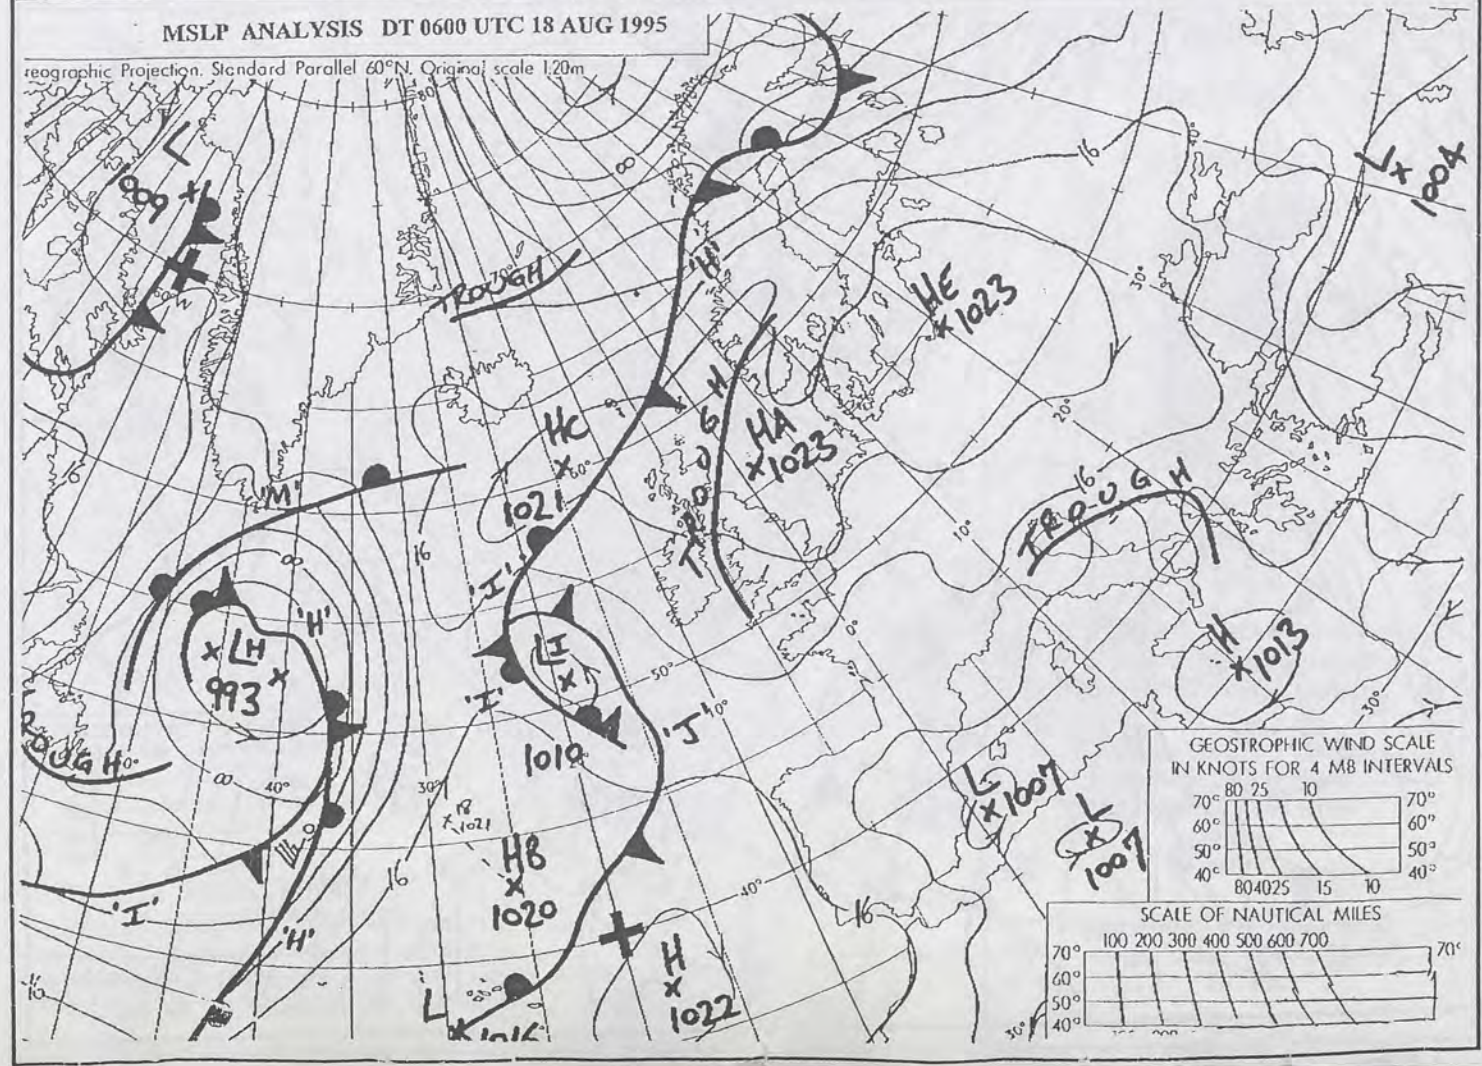 MSLP ANALYSIS DT 0600 UTC 18 AUG 1995
reographic Projection. Standard Parallel 60°N. Original scale 1:20m
80
L
TROUGH
'H'
16
L
1004
30°
HE
1023
HC
60°
1021
TROUGH
HA
1023
20°
16
TROUGH
10°
16
16
'M'
'I'
'H'
LH
993
LI
1010
'I'
50°
10°
'J'
0°
H
1013
30°
ROUGH
40°
30°
18
1021
HB
1020
16
'I'
'H'
40°
16
H
1022
L
1016
L
1007
L
1007
30°
GEOSTROPHIC WIND SCALE
IN KNOTS FOR 4 MB INTERVALS
80 25 10
70° 70°
60° 60°
50° 50°
40° 40°
80 40 25 15 10
SCALE OF NAUTICAL MILES
100 200 300 400 500 600 700
70° 70°
60°
50°
40°